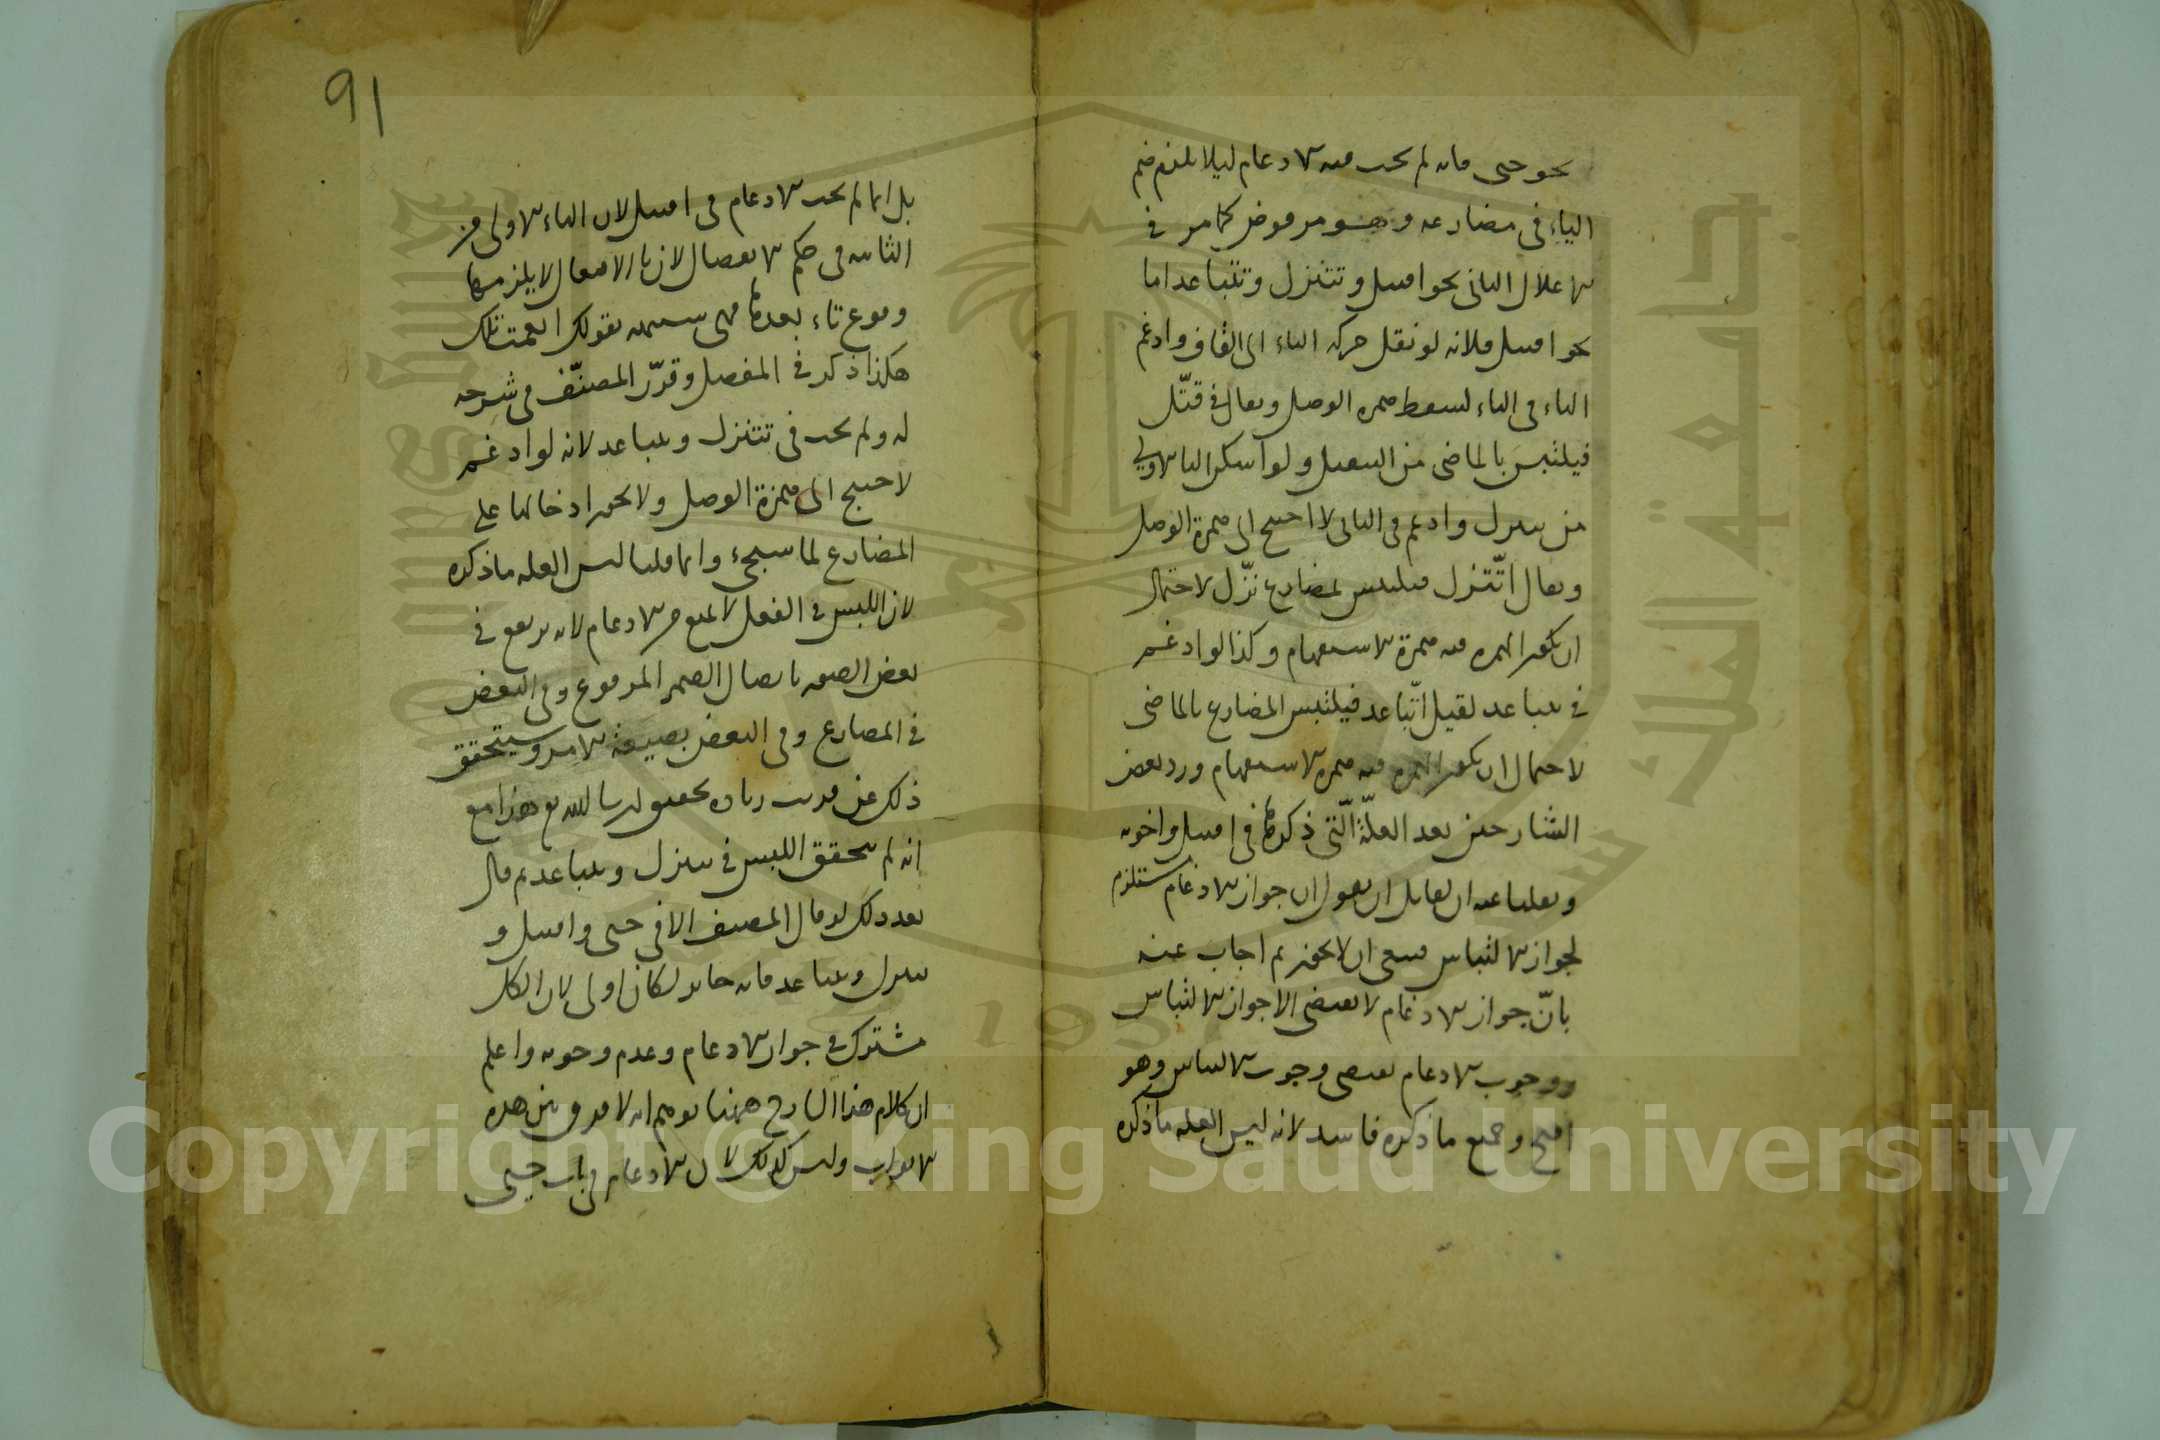 نحو حيى فانه لم يجب فيه الادغام ليلا يلزم ضم
الياء في مضارعه وهو مرفوض كما مر في
الاعلال الثاني نحو اقتتل وتتنزل وتتباعد اما
نحو اقتتل فلانه لو نقل حركة التاء الى القاف وادغم
التاء في التاء لسقط همزه الوصل ويقال في قتّل
فيلتبس بالماضى من التفعيل ولو اسكن التا الاولى
من تتنزل وادغم في الثاني لااحتيج الى همزة الوصل
ويقال اتّنزل فيلتبس بمضارع نزّل لاحتمال
ان يكون الهمزه فيه همزة الاستفهام وكذا لو ادغم
في تتباعد لقيل اتّباعد فيلتبس المضارع بالماضى
لاحتمال ان يكون الهمزه فيه همزه الاستفهام ورد بعض
الشارحين بعد العلّة الّتى ذكرها في اقتتل واخويه
ونقلنا عنه ان لقايل ان يقول ان جواز الادغام مستلزم
لجواز الالتباس فينبغى ان لا يجوز ثم اجاب عنه
بانّ جواز الادغام لا يقتضى الا جواز الالتباس
ووجوب الادغام يقتضى وجوب الالتباس وهو
اقبح وجميع ما ذكره فاسد لانه ليس العله ما ذكره
91
بل انما لم يجب الادغام في اقتتل لان التاء الاولى من
الثانيه في حكم الانفصال لان تا الافتعال لا يلزمها
وقوع تاء بعدها فهى شبيهه بقولك انعمت تلك
هكذا ذكر في المفصل وقرّر المصنّف في شرحه
له ولم يجب في تتنزل وتتباعد لانه لو ادغم
لاحتيج الى همزة الوصل ولا يجوز ادخالها على
المضارع لما سيجىء وانما قلنا ليس العله ما ذكره
لان اللبس في الفعل لا يمنع من الادغام لانه يرتفع في
بعض الصور باتصال الضمير المرفوع وفي البعض
في المضارع وفي البعض بصيغة الامر وسيتحقق
ذلك عن قريب زياده تحقيق ان شا الله تع هذا مع
انه لم يتحقق اللبس في تتنزل وتتباعد ثم قال
بعد ذلك لو قال المصنف الا في حيى واقتتل و
تتنزل وتتباعد فانه جايز لكان اولى لان الكل
مشترك في جواز الادغام وعدم وجوبه واعلم
ان كلام هذا الشارح ههنا يوهم انه لا فرق بين هذه
الابواب وليس كذلك لان الادغام في باب حيى